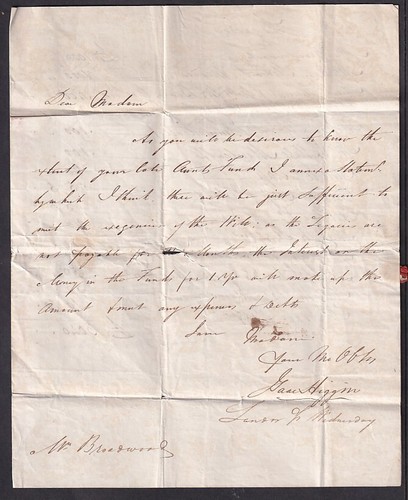 Dear Madam
As you will be desirous to know the
extent of your late Aunts Funds I annex a Statemt
by which I think there will be just sufficient to
meet the exegencies of the Will: as the Legacies are
not payable for 12 Months the Interest on the
Money in the Funds for 1 Yr will make up the
Amount & meet any expenses & Debts
I am
Madam
Your Mo Obt
Isaac Higgin
Wednesday
Mrs Broadwood